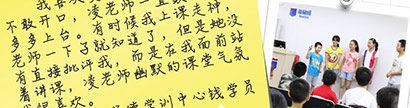 我喜欢
不敢开口，凌老师一直
多多上台。有时候我上课走神，
老师一下子就知道了，但是她没
有直接批评我，而是在我面前站
着讲课，凌老师幽默的课堂气氛
很喜欢。
学训中心钱学员